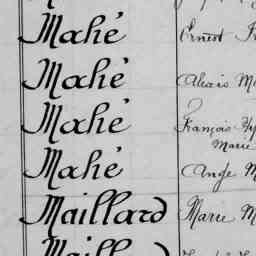 Mahé Ernest
Mahé Alexis
Mahé François Hy
Marie
Mahé Ange
Maillard Marie